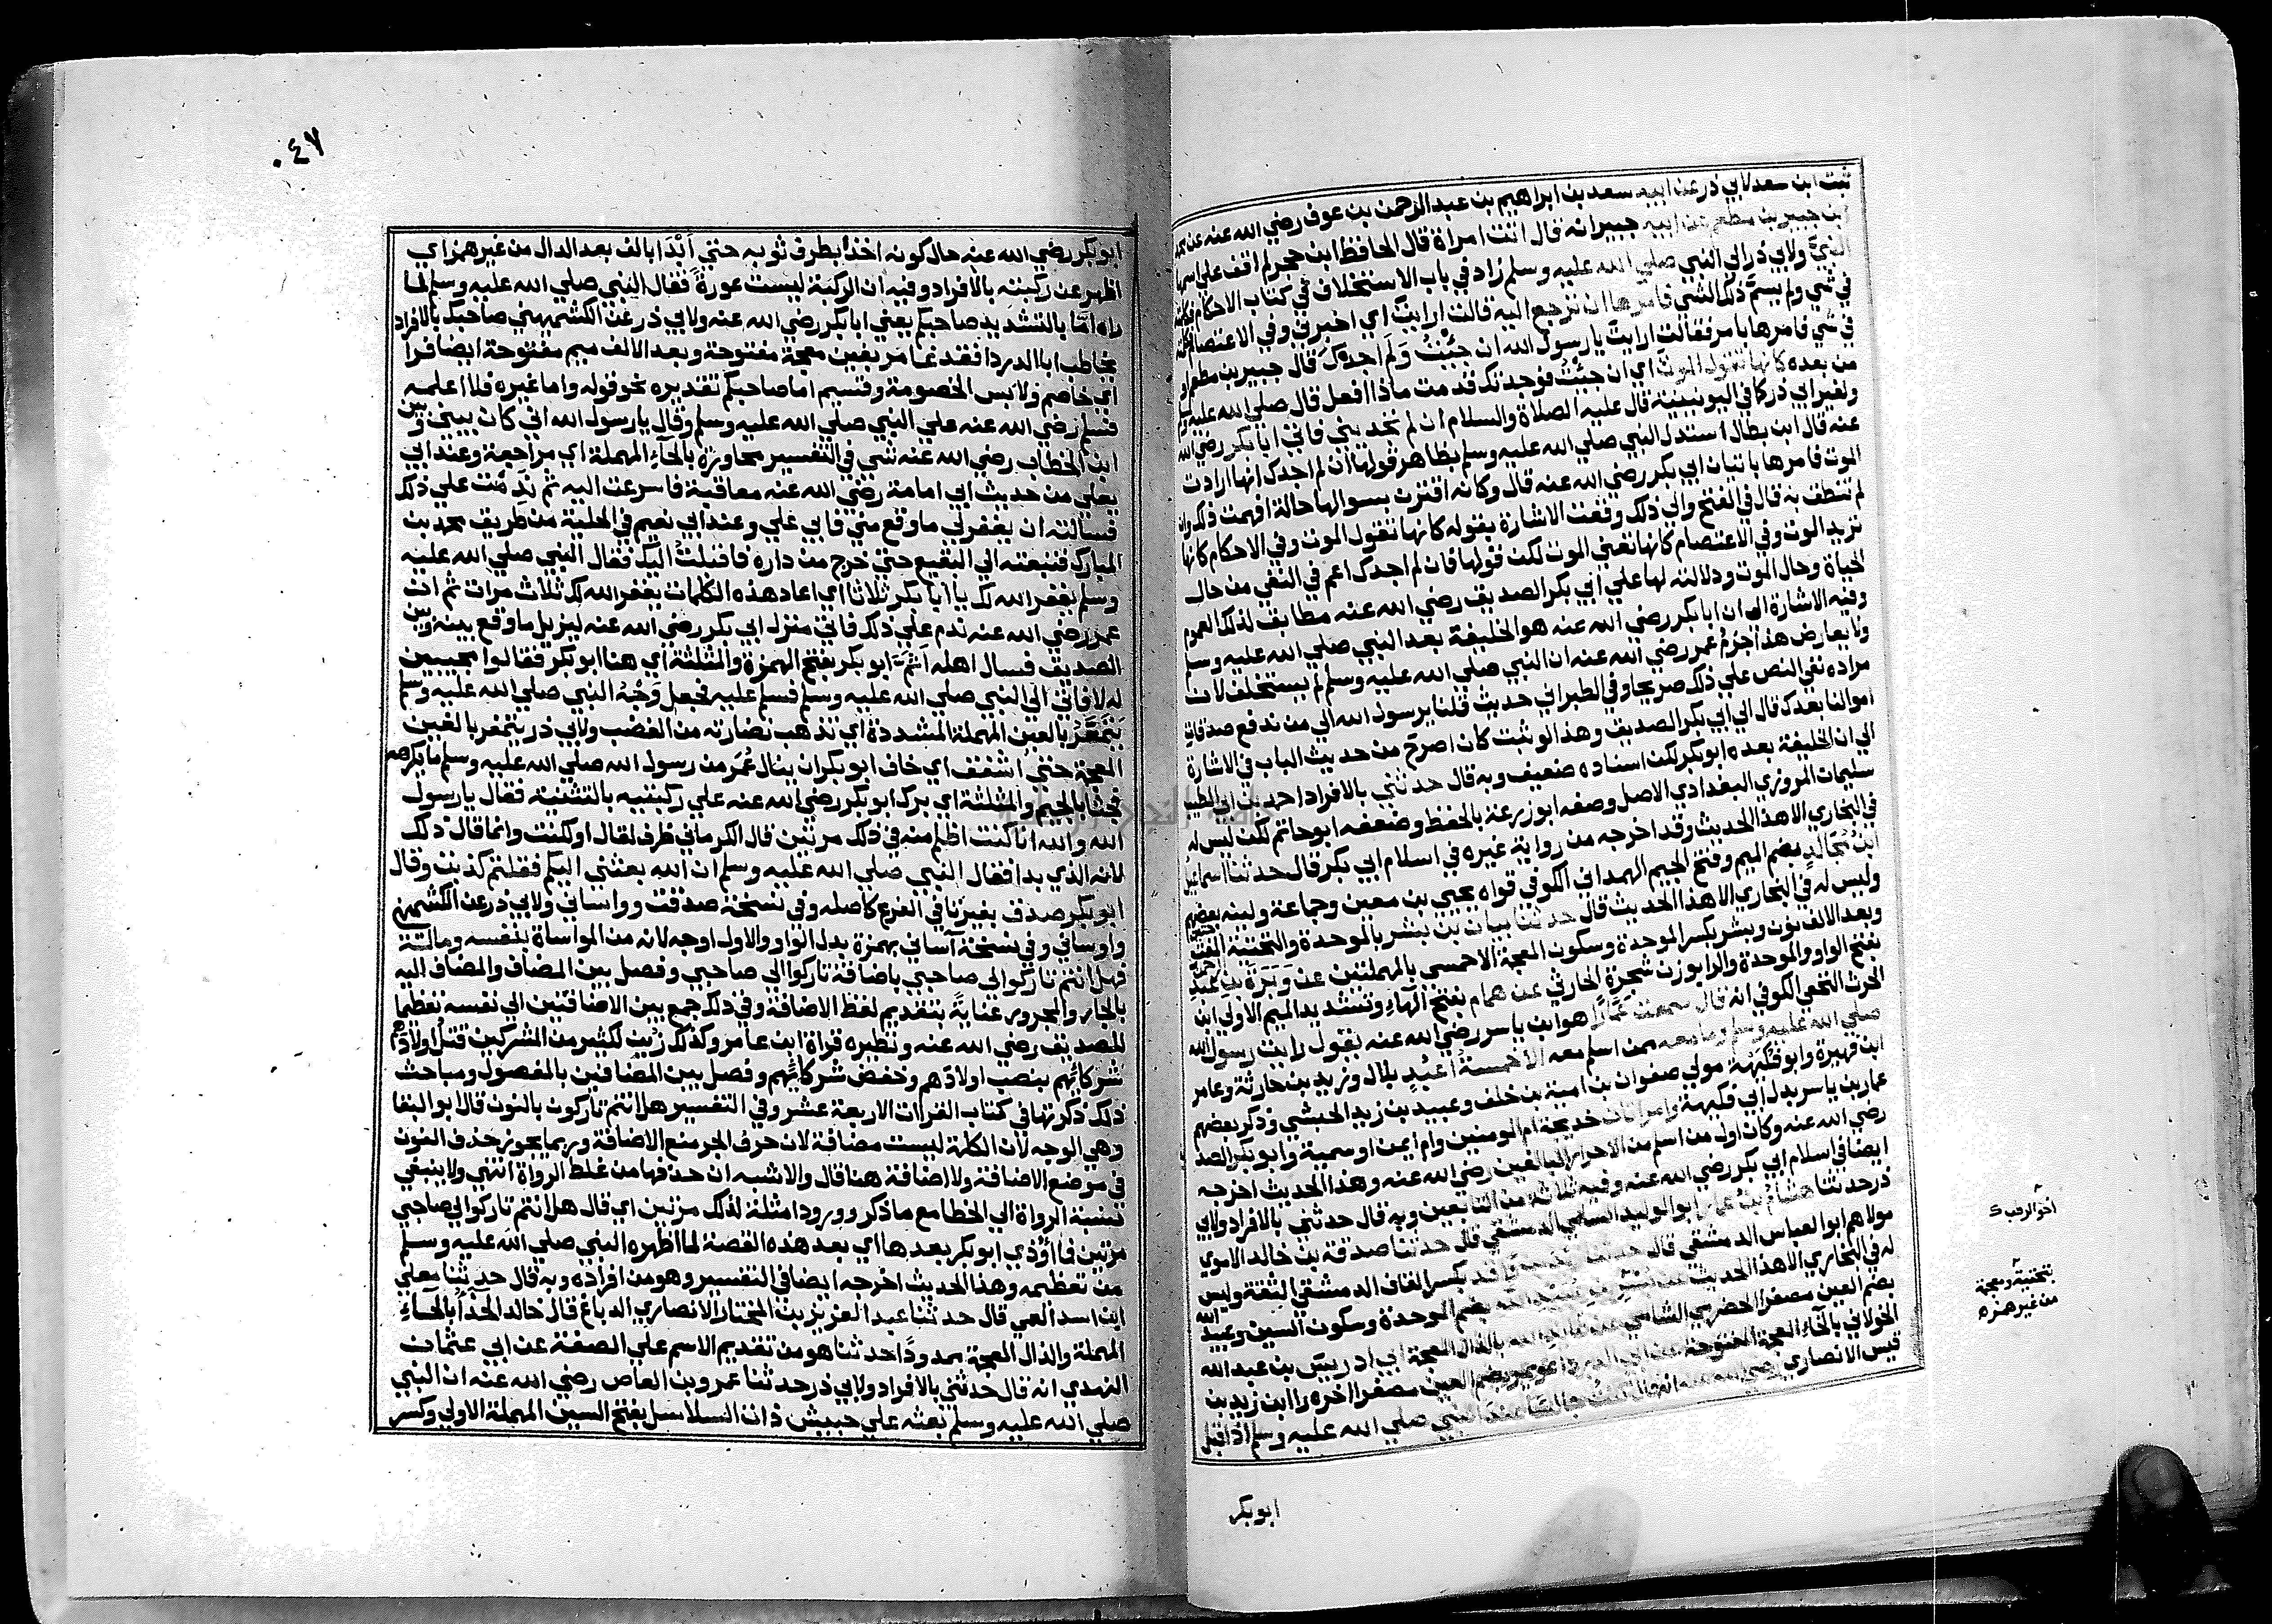 بنت ابن سعد لابي ذر عن ابيه سعد بن ابراهيم بن عبد الرحمن بن عوف رضي الله عنه عن محمد
ابن جبير بن مطعم عن ابيه جبير انه قال اتت امراة قال الحافظ ابن حجر لم اقف علي اسمها
النبيَّ ولابي ذر الي النبي صلي الله عليه وسلم زاد في باب الاستخلاف في كتاب الاحكام فكلمته
في شي ولم يسمَّ ذلك الشي فامرها ان ترجع اليه قالت ارايتَ اي اخبرني وفي الاعتصام
في شي فامرها بامر فقالت ارايت يا رسول الله ان جئتُ وَلَم اجدكَ قال جبير بن مطعم
من بعده كانها تقول الموت اي ان جئتُ فوجدتك قد مت ماذا افعل قال صلي الله عليه
ولغير ابي ذر كما في اليونينية قال عليه الصلاة والسلام ان لم تجديني فاتي ابا بكر رضي الله
عنه قال ابن بطال استدل النبي صلي الله عليه وسلم بظاهر قولها ان لم اجدك انها ارادت
الموت فامرها باتيان ابي بكر رضي الله عنه قال وكانه اقترن بسوالها حالة افهمت ذلك وان
لم تنطق به قال في الفتح والي ذلك وقعت الاشارة بقوله كانها تقول الموت وفي الاحكام كانها
تريد الموت وفي الاعتصام كانها تعني الموت لكن قولها فان لم اجدك اعم في النفي من حال
الحياة وحال الموت ودلالته لها علي ابي بكر الصديق رضي الله عنه مطابق لذلك العموم
وفيه الاشارة الي ان ابا بكر رضي الله عنه هو الخليفة بعد النبي صلي الله عليه وسلم
ولا يعارض هذا جزمُ عمر رضي الله عنه ان النبي صلي الله عليه وسلم لم يستخلف لان
مراده نفي النص علي ذلك صريحا وفي الطبراني حديث قلنا يرسول الله الي من ندفع صدقات
اموالنا بعدك قال الي ابي بكر الصديق وهذا لو ثبت كان اصرح من حديث الباب في الاشارة
الي ان الخليفة بعده ابو بكر لكن اسناده ضعيف وبه قال حدثني بالافراد احمد بن ابي الطيب
سليمان المروزي البغدادي الاصل وصفه ابو زرعة بالحفظ وضعفه ابو حاتم لكن ليس له
في البخاري الا هذا الحديث وقد اخرجه من رواية غيره في اسلام ابي بكر قال حدثنا اسماعيل
ابنُ مُجَالدٍ بضم الميم وفتح الجيم الهمداني الكوفي قواه يحيي بن معين وجماعة ولينه بعضهم
وليس له في البخاري الا هذا الحديث قال حدثنا بيان بن بشر بالموحدة والتحتية
وبعد الالف نون وبشر بكسر الموحدة وسكون المعجمة الاحمسي بالمهملتين عن وَبَرَةَ بن عبد
بفتح الواو والموحدة والرا بوزن شجرة الحارثي عن همام بفتح الهاءِ وتشديد الميم الاولي ابن
الحرث النخعي الكوفي انه قال سمعت عَمَّارًا هو ابن ياسر رضي الله عنه يقول رايت رسول الله
صلي الله عليه وسلم وما معه ممن اسلم معه الا خمسةُ اَعْبُدٍ بلال وزيد بن حارثة وعامر
ابن فهيرة وابو فكيهة مولي صفوان بن امية بن خلف وعبيد بن زيد الحبشي وذكر بعضهم
عمار بن ياسر بدل ابي فكيهة وامراتان خديجة ام المومنين وام ايمن او سمية وابو بكر الصديق
رضي الله عنه وكان اول من اسلم من الاحرار البالغين رضي الله عنه وهذا الحديث اخرجه
ايضا في اسلام ابي بكر رضي الله عنه وفيه ثلاثة من التابعين وبه قال حدثني بالافراد ولابي
ذر حدثنا هشام بن عمار ابو الوليد السلمي الدمشقي قال حدثنا صدقة بن خالد الاموي
مولاهم ابو العباس الدمشقي قال حدثنا زيد بن واقد بكسر القاف الدمشقي الثقة وليس
له في البخاري الا هذا الحديث عن بُسْرِ بن عبيد الله بضم الموحدة وسكون السين وعبيد الله
بضم العين مصغرا الحضرمي الشامي عن عائذ الله بالذال المعجمة ابي ادريس بن عبد الله
الخولاني بالخاءِ المعجمة المفتوحة عن ابي الدرداء عويمر بضم العين مصغرا اخره را ابن زيد بن
قيس الانصاري رضي الله عنه انه قال كنت جالسا عند النبي صلي الله عليه وسلم اذ اقبل
ابو بكر
اخو الرقب
بتحتية ومعجمة
من غير همزه
٠٤٧
ابو بكر رضي الله عنه حال كونه اخذا بطرف ثوبه حتي اَبْدَا بالف بعد الدال من غير همز اي
اظهر عن ركبته بالافراد وفيه ان الركبة ليست عورةً فقال النبي صلي الله عليه وسلم لما
راه امَّا بالتشديد صاحبكم يعني ابا بكر رضي الله عنه ولابي ذر عن الكشميهني صاحبك بالافراد
يخاطب ابا الدردا فقد غامر بغين معجمة مفتوحة وبعد الالف ميم مفتوحة ايضا فرا
اي خاصم ولابس الخصومة وقسيم اما صاحبكم تقديره نحو قوله واما غيره فلا اعلمه
فسلم رضي الله عنه علي النبي صلي الله عليه وسلم وقال يا رسول الله اني كان بيني وبين
ابن الخطاب رضي الله عنه شي في التفسير محاورة بالحآءِ المهملة اي مراجعة وعند ابي
يعلي من حديث ابي امامة رضي الله عنه معاقبة فاسرعت اليه ثم نَدِمْت علي ذلك
فسالته ان يغفر لي ما وقع مني فابي علي وعند ابي نعيم في الحلية من طريق محمد بن
المبارك فتبعته الي البقيع حتي خرج من داره فاقبلتُ اليك فقال النبي صلي الله عليه
وسلم يغفر الله لك يا ابا بكر ثلاثا اي اعاد هذه الكلمات يغفر الله لك ثلاث مرات ثم ان
عمر رضي الله عنه ندم علي ذلك فاتي منزل ابي بكر رضي الله عنه ليزيل ما وقع بينه وبين
الصديق فسال اهله اَثَمَّ ابو بكر بفتح الهمزة والمثلثة اي هنا ابو بكر فقالوا مجيبين
له لا فاتي الي النبي صلي الله عليه وسلم فسلم عليه فجعل وَجْهُ النبي صلي الله عليه وسلم
يَتَمَعَّرُ بالعين المهملة المشددة اي تذهب نضارته من الغضب ولابي ذر يتمغر بالغين
المعجمة حتي اشفق اي خاف ابو بكر ان ينال عُمَر من رسول الله صلي الله عليه وسلم ما يكرهه
فجثا بالجيم والمثلثة اي برك ابو بكر رضي الله عنه علي ركبتيه بالتثنية فقال يا رسول
الله والله انا كنت اظلم منه في ذلك مرتين قال الكرماني ظرف لقال او لكنت وانما قال ذلك
لانه الذي بدا فقال النبي صلي الله عليه وسلم ان الله بعثني اليكم فقلتم كذبت وقال
ابو بكر صدق بغير تا في الفرع كاصله وفي نسخة صدقت وواساني ولابي ذر عن الكشميهني
واوساني وفي نسخة آساني بهمزة بدل الواو والاول اوجه لانه من المواساة بنفسه وماله
فهل انتم تاركوا لي صاحبي باضافة تاركوا الي صاحبي وفصل بين المضاف والمضاف اليه
بالجار والمجرور عنايةً بتقديم لفظ الاضافة وفي ذلك جمع بين الاضافتين الي نفسه تعظيما
للصديق رضي الله عنه ونظيره قراة ابن عامر وكذلك زُيِن لكثير من المشركين قتلُ اولادَهم
شركائهم بنصب اولادهم وخفض شركائهم وفصل بين المضافين بالمفعول ومباحث
ذلك ذكرتها في كتاب القراات الاربعة عشر وفي التفسير هل انتم تاركون بالنون قال ابو البقا
وهي الوجه لان الكلمة ليست مضافة لان حرف الجر منع الاضافة وربما يجوز حذف النون
في موضع الاضافة ولا اضافة هنا قال والاشبه ان حذفها من غلط الرواة انتهي ولا ينبغي
نسبة الرواة الي الخطا مع ما ذكر وورود امثلة لذلك مرتين اي قال هل انتم تاركوا لي صاحبي
مرتين فما اُوُذي ابو بكر بعدها اي بعد هذه القصة لما اظهره النبي صلي الله عليه وسلم
من تعظيمه وهذا الحديث اخرجه ايضا في التفسير وهو من افراده وبه قال حدثنا معلي
ابن اسد العمي قال حدثنا عبد العزيز بن المختار الانصاري الدباغ قال خالد الحذآءُ بالحآءِ
المهملة والذال المعجمة ممدودًا حدثنا هو من تقديم الاسم علي الصفة عن ابي عثمان
النهدي انه قال حدثني بالافراد ولابي ذر حدثنا عمرو بن العاص رضي الله عنه ان النبي
صلي الله عليه وسلم بعثه علي جيش ذات السلاسل بفتح السين المهملة الاولي وكسر